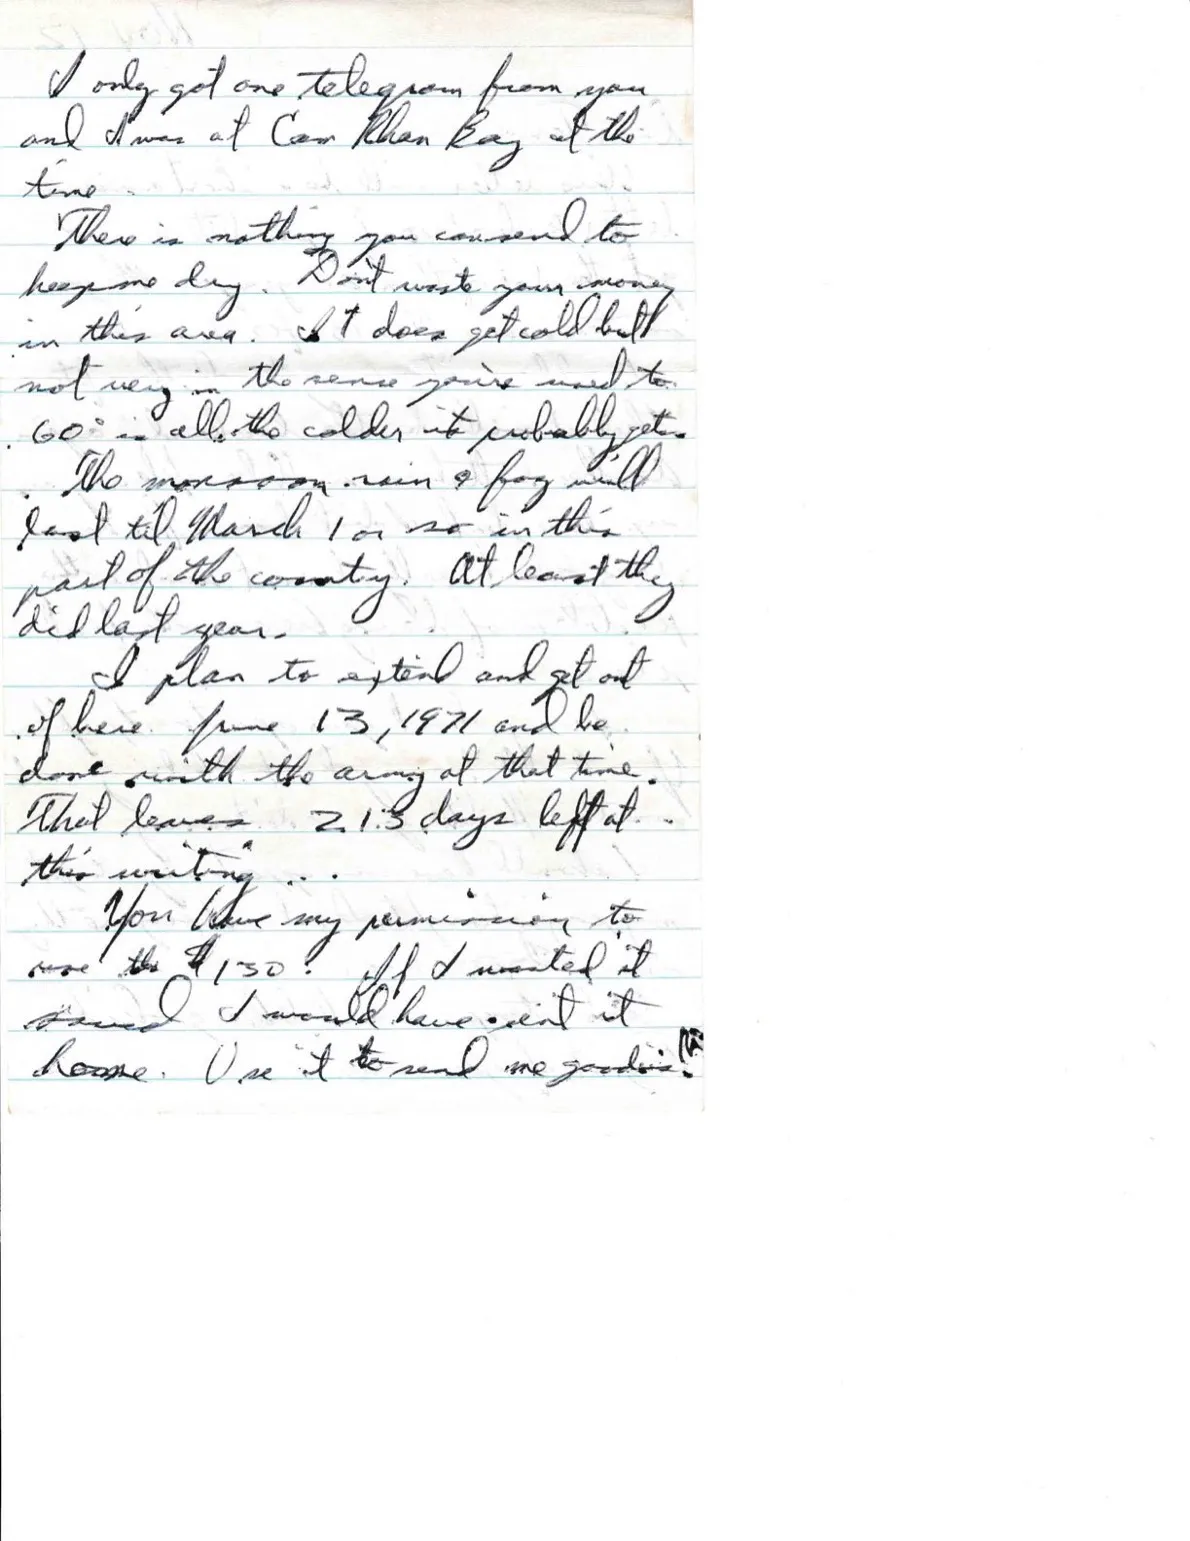 I only got one telegram from you
and I was at Cam Rhan Bay at the
time.
There is nothing you can send to
keep me dry. Don't waste your money
in this area. It does get cold but
not very in the sense you're used to.
60° is all the colder it probably gets.
The monsoon rain & fog will
last til March 1 or so in this
part of the country. At least they
did last year.
I plan to extend and get out
of here June 13, 1971 and be
done with the army at that time.
That leaves 213 days left at
this writing...
You have my permission to
use the $130. If I wanted it
saved I would have sent it
home. Use it to send me goodies.